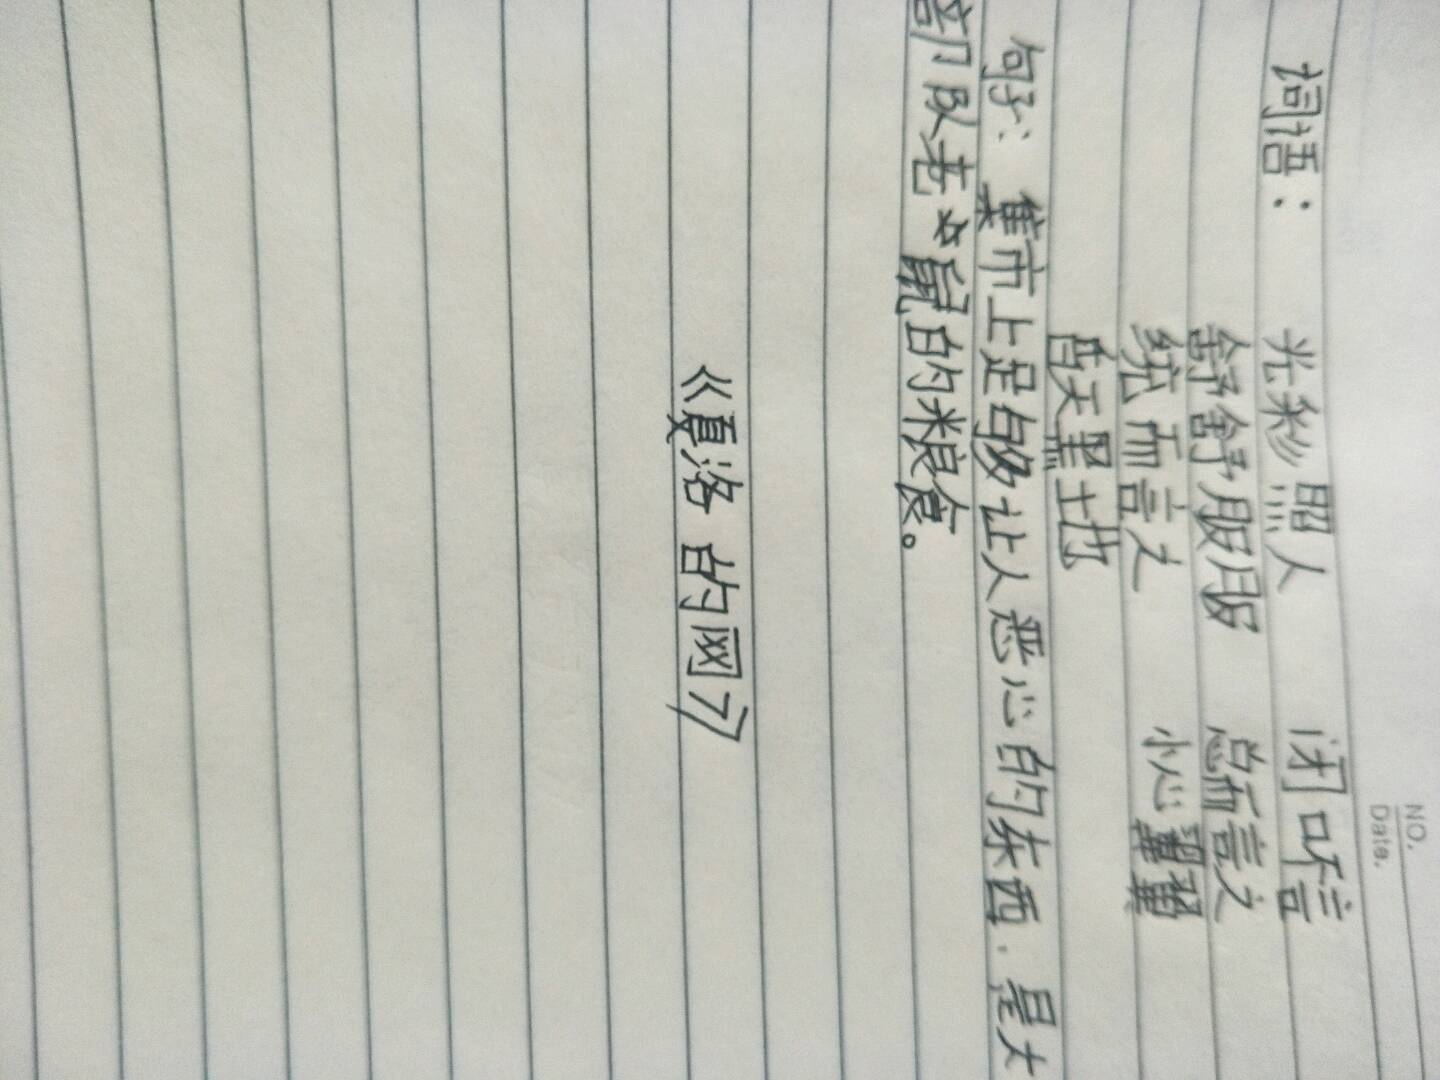 NO.
Date.
词语： 光彩照人 闭口不言
舒舒服服 总而言之
统而言之 小心翼翼
昏天黑地
句子：集市上足够让人恶心的东西.是大
部队老鼠的粮食。
《夏洛的网》